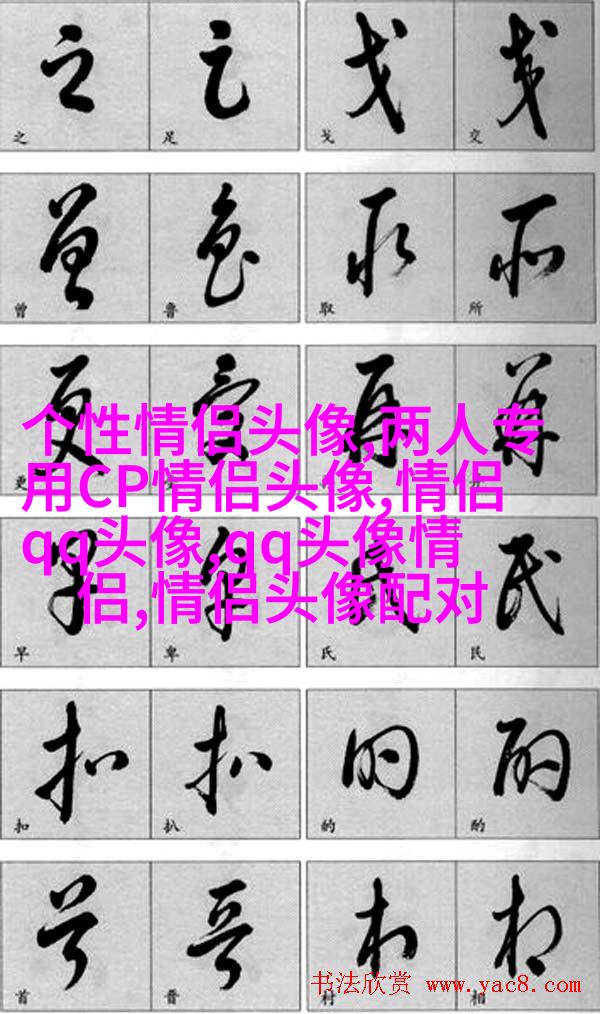 之 足 戈 交
曾 鲁 取 所
个性情侣头像,两人专
用CP情侣头像,情侣
qq头像,qq头像情
侣,情侣头像配对
更
早 卑 氏 民
扣 扒 的 酌
首 晋 村 相
书法欣赏 www.yac8.com